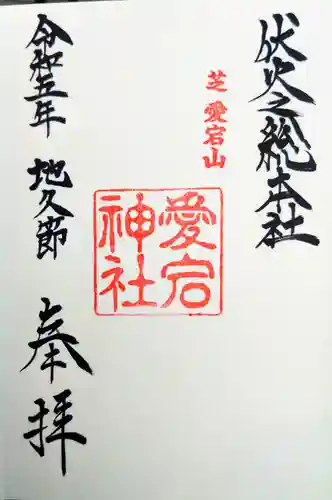 伏火之総本社
芝 愛宕山
愛宕
神社
奉拝
令和五年 地久節